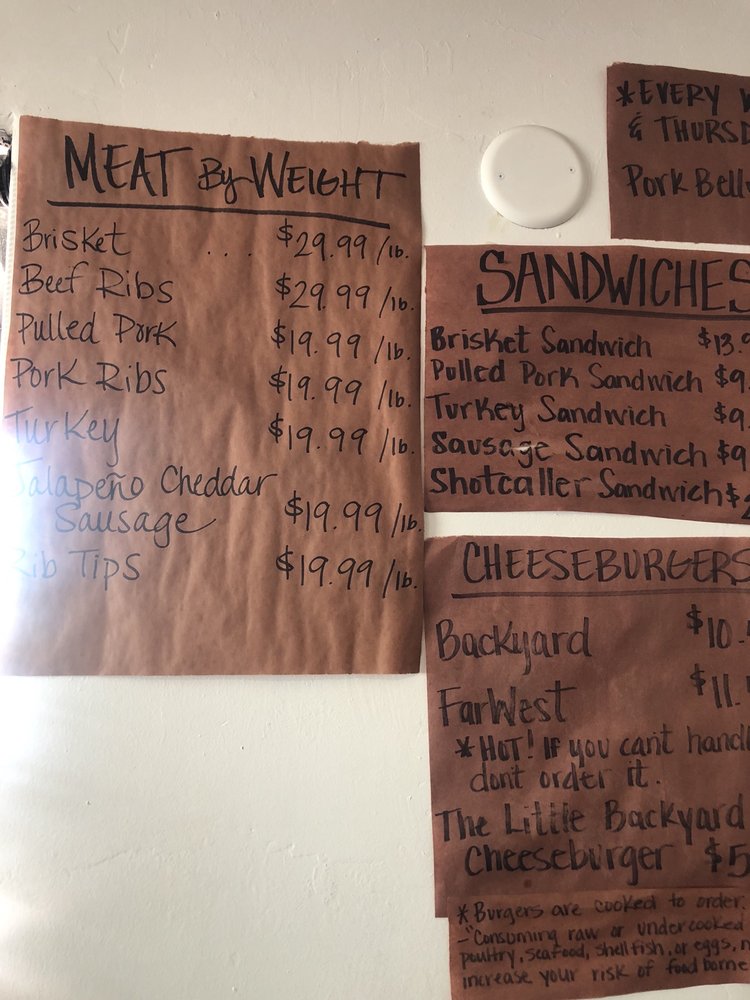 MEAT By WEIGHT
Brisket ... $29.99/lb.
Beef Ribs $29.99/lb.
Pulled Pork $19.99/lb.
Pork Ribs $19.99/lb.
Turkey $19.99/lb.
Jalapeño Cheddar
Sausage $19.99/lb.
Rib Tips $19.99/lb.
*EVERY
& THURSD
Pork Belly
SANDWICHES
Brisket Sandwich $13.9
Pulled Pork Sandwich $9.
Turkey Sandwich $9.
Sausage Sandwich $9
Shotcaller Sandwich $
CHEESEBURGERS
Backyard $10.
FarWest $11.
*HOT! If you cant handl
dont order it.
The Little Backyard
Cheeseburger $5
*Burgers are cooked to order.
-"Consuming raw or undercooked
poultry, seafood, shellfish, or eggs,
increase your risk of food borne